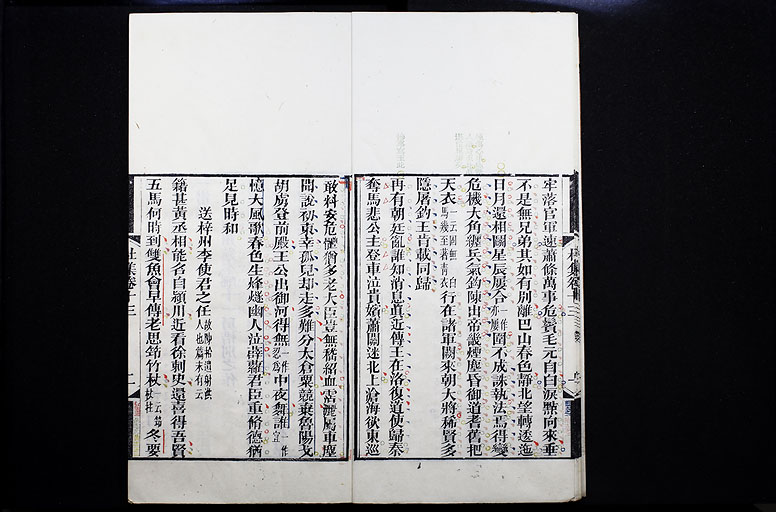 牢落官軍速蕭條萬事危鬢毛元自白淚點向來垂
不是無兄弟其如有別離巴山春色靜北望轉逶迤
日月還相鬬星辰屢合一作亦屢圍不成誅執法焉得變
危機大角纏兵氣鉤陳出帝畿煙塵昏御道耆舊把
天衣一云固無白馬幾至著青衣行在諸軍闕來朝大將稀賢多
隱屠釣王肯載同歸
再有朝廷亂難知消息真近傳王在洛復道使歸秦
奪馬悲公主登車泣貴嬪蕭關迷北上滄海欲東巡
敢料安危體猶多老大臣豈無嵇紹血霑灑屬車塵
聞說初東幸孤兒却走多難分太倉粟競棄魯陽戈
胡虜登前殿王公出御河得無一作忍為中夜舞誰一作宜
憶大風歌春色生烽燧幽人泣薜蘿君臣重修德猶
足見時和
送梓州李使君之任故陳拾遺射洪人也篇末有云
籍甚黃丞相能名自潁川近看徐刺史還喜得吾賢
五馬何時到雙魚會早傳老思筇竹杖一云筇杖拄冬要
杜集卷十三
二